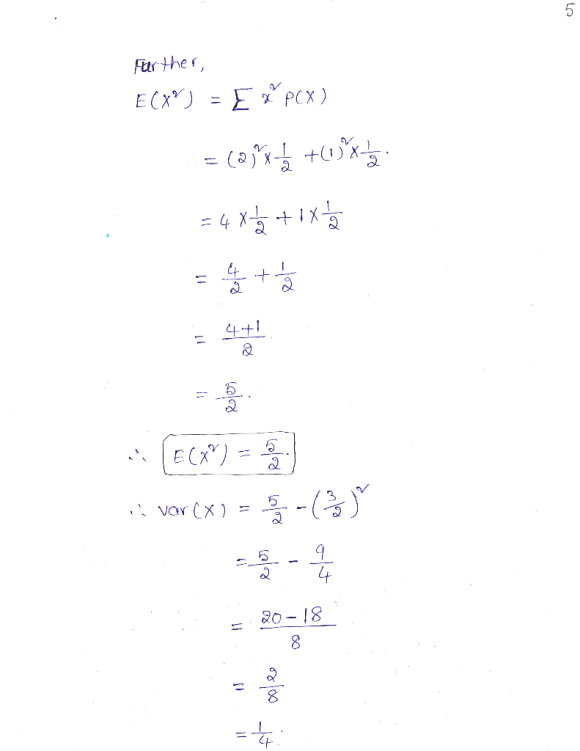 5
Further,
E(X²) = Σ x² P(X)
= (2)² × 1/2 + (1)² × 1/2.
= 4 × 1/2 + 1 × 1/2
= 4/2 + 1/2
= 4+1/2
= 5/2.
∴ E(X²) = 5/2.
∴ var(X) = 5/2 - (3/2)²
= 5/2 - 9/4
= 20-18/8
= 2/8
= 1/4.